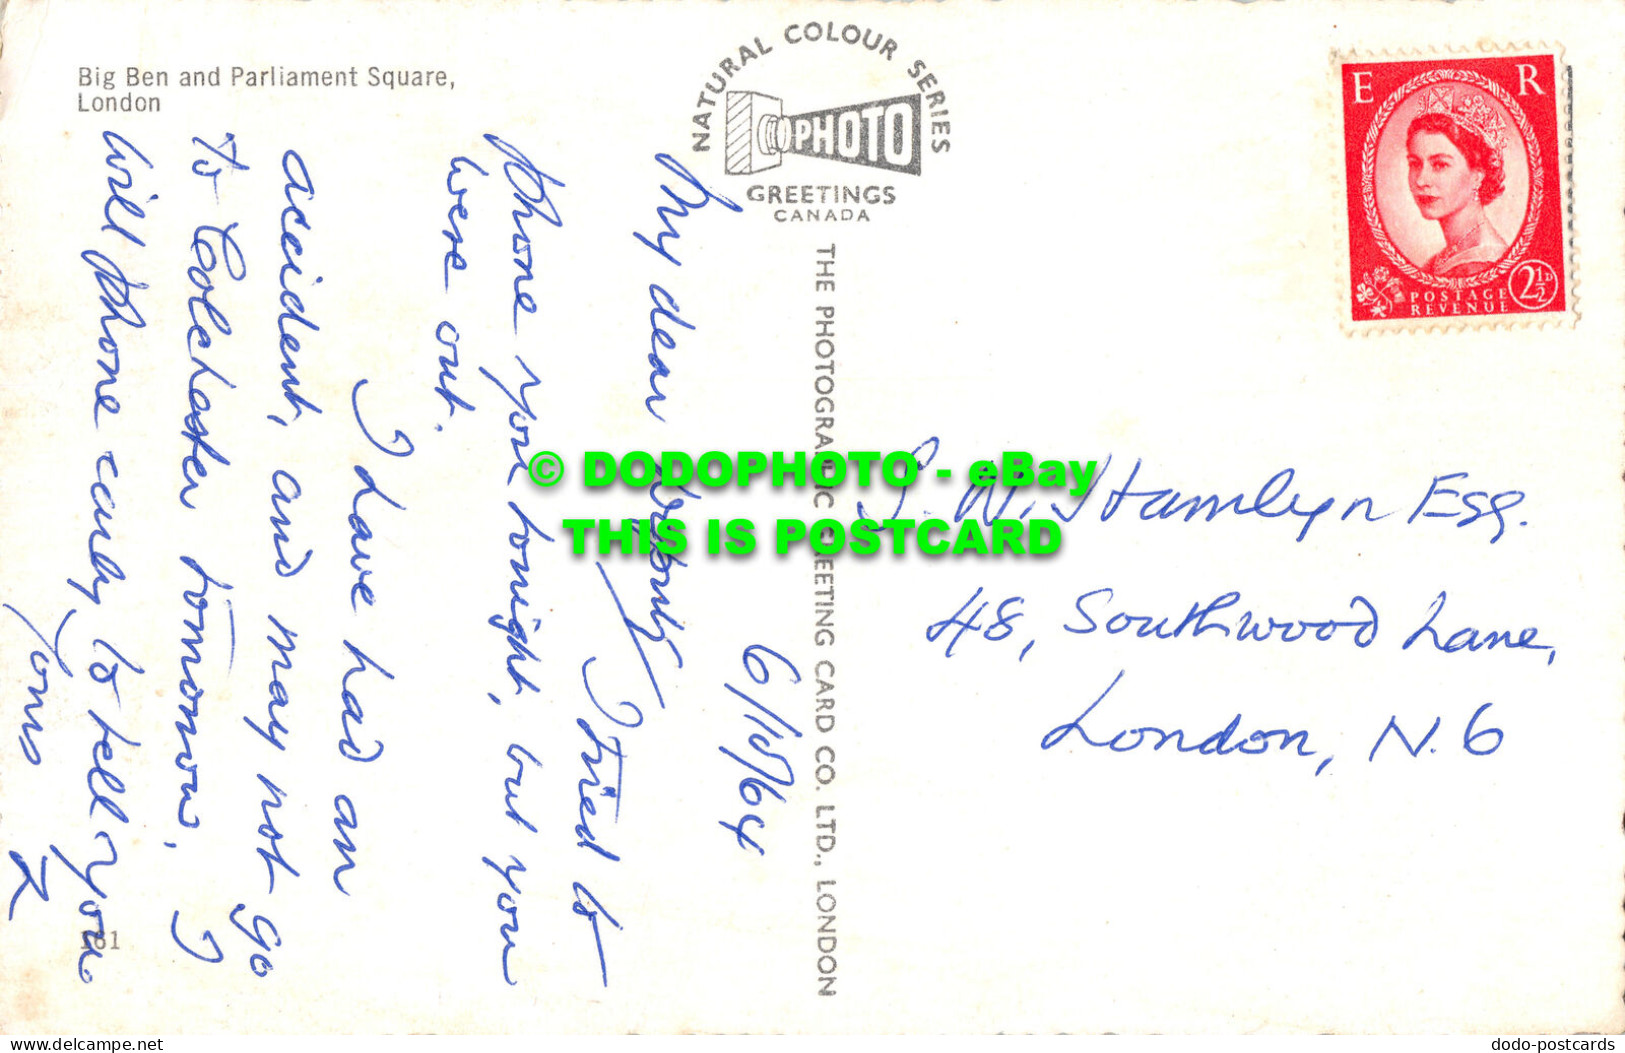 Big Ben and Parliament Square,
London
NATURAL COLOUR SERIES
PHOTO
GREETINGS
CANADA
THE PHOTOGRAPHIC GREETING CARD CO. LTD., LONDON
E R
POSTAGE
REVENUE
2½D
6/10/64
My dear
I tried to
phone you tonight, but you
were out.
I have had an
accident, and may not go
to Colchester tomorrow. I
will phone early to tell you.
Yours
S. W. Hamlyn Esq.
48, Southwood Lane,
London, N. 6
© DODOPHOTO - eBay
THIS IS POSTCARD
Website: delcampe.net
dodo-postcards